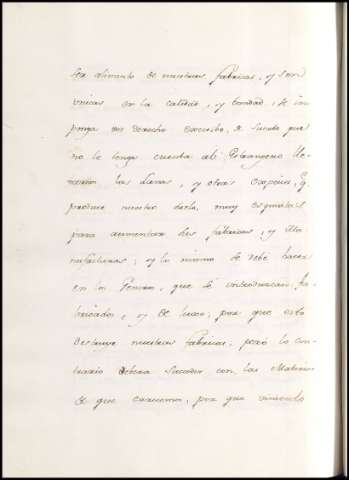 ser alimento de nuestras fabricas, y son
unicas en la calidad, y bondad, se im
ponga un derecho excesibo, de suerte que
no le tenga cuenta al Estrangero lle-
las lanas, y otras especies, q.
produce nuestro suelo, muy
para aumentar las fabricas, y Ma
nufacturas; y lo mismo se debe hacer
en los Generos, que se introduzcan fa-
bricados, y de luxo; por que esto
destruye nuestras fabricas; pero lo con-
trario debera suceder con las Materias
de que carecemos, por que viniendo